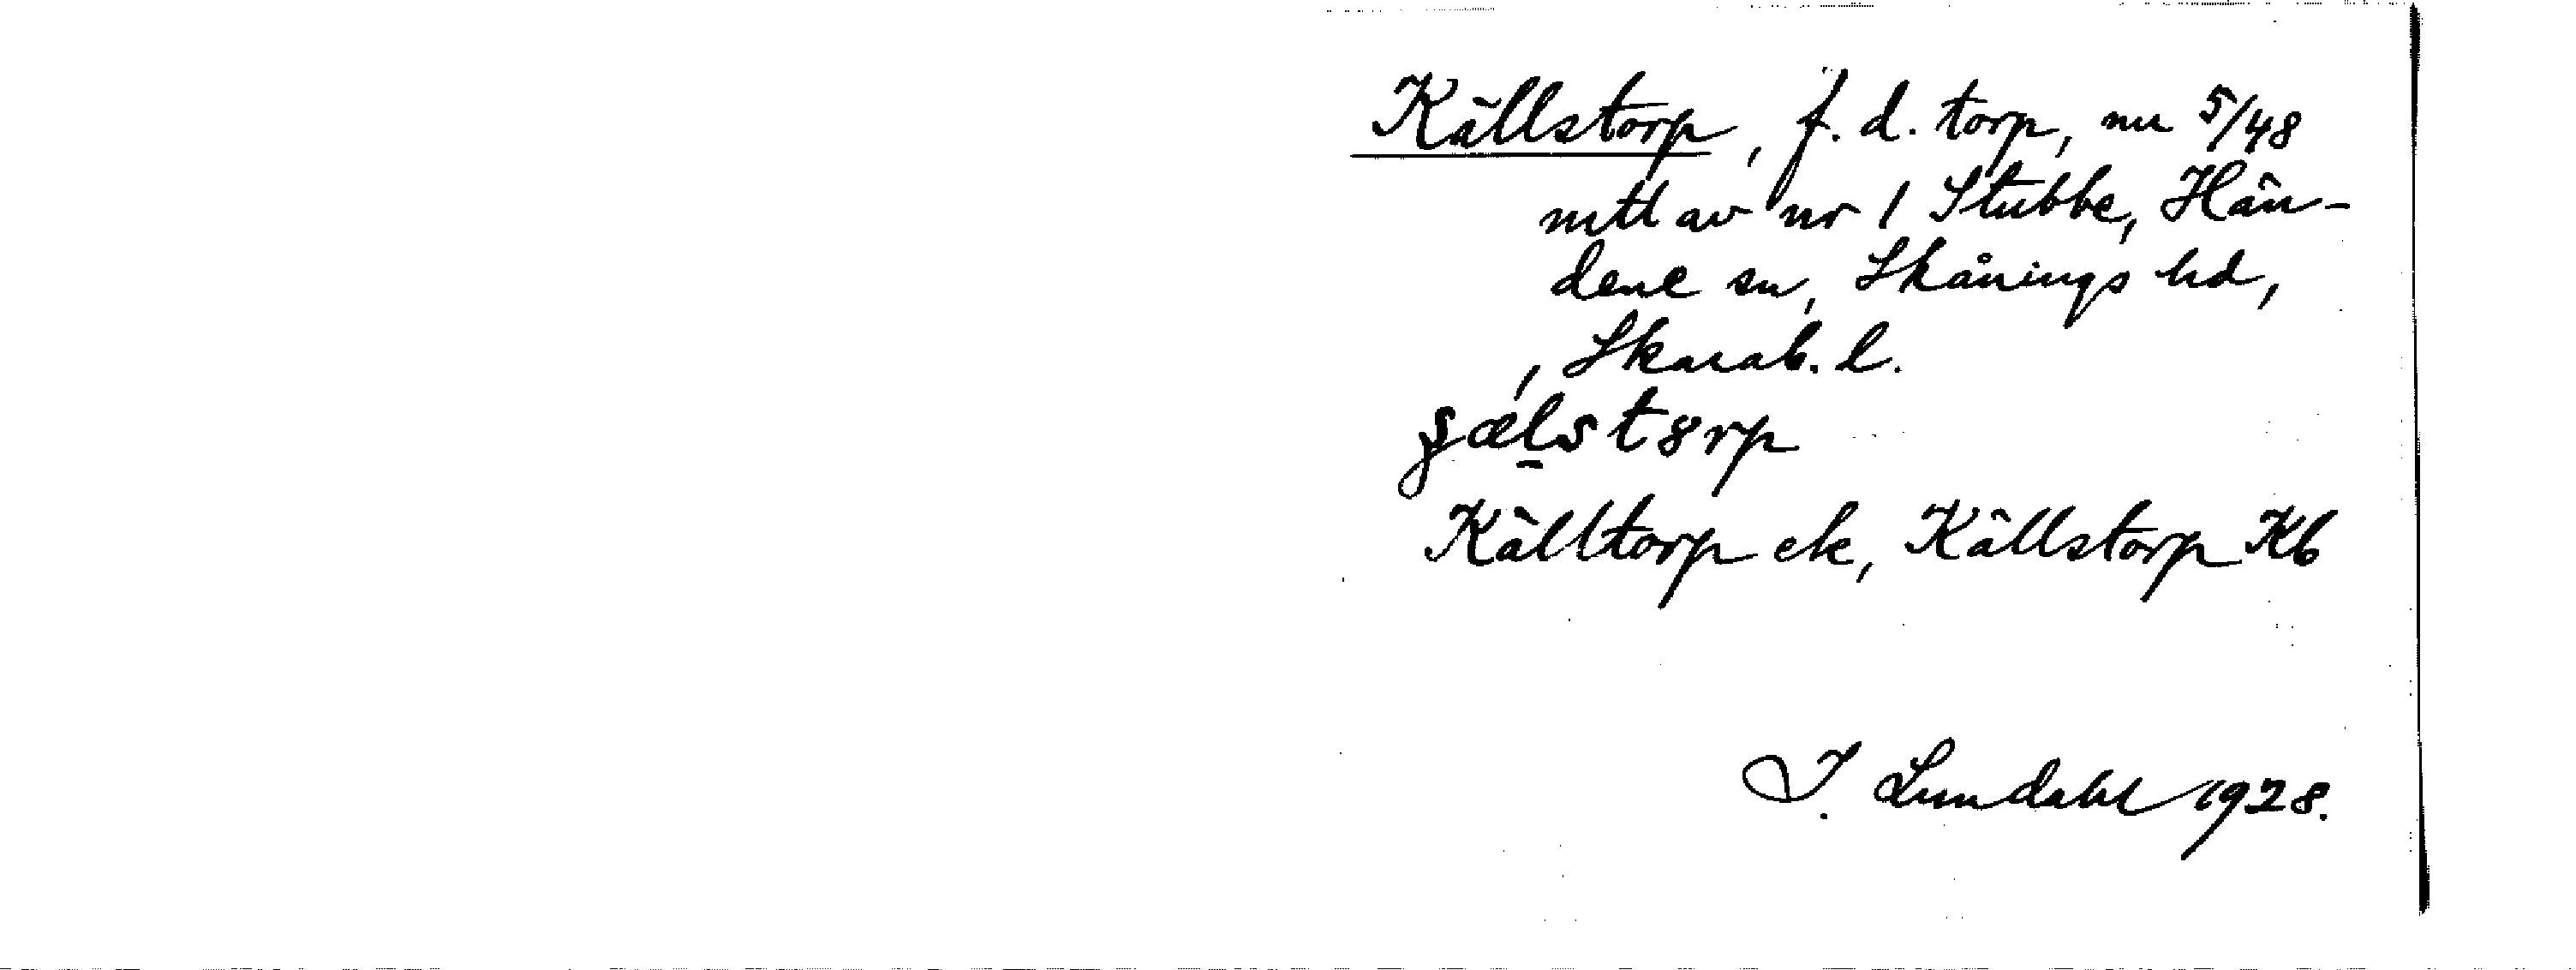 Källstorp, f.d. torp, nu 5/48
mtl av nr 1 Stubbe, Hän-
dene sn, Skånings hd,
, Skarab. l.
Källtorp ek, Källstorp Kb
I. Lundahl 1928.